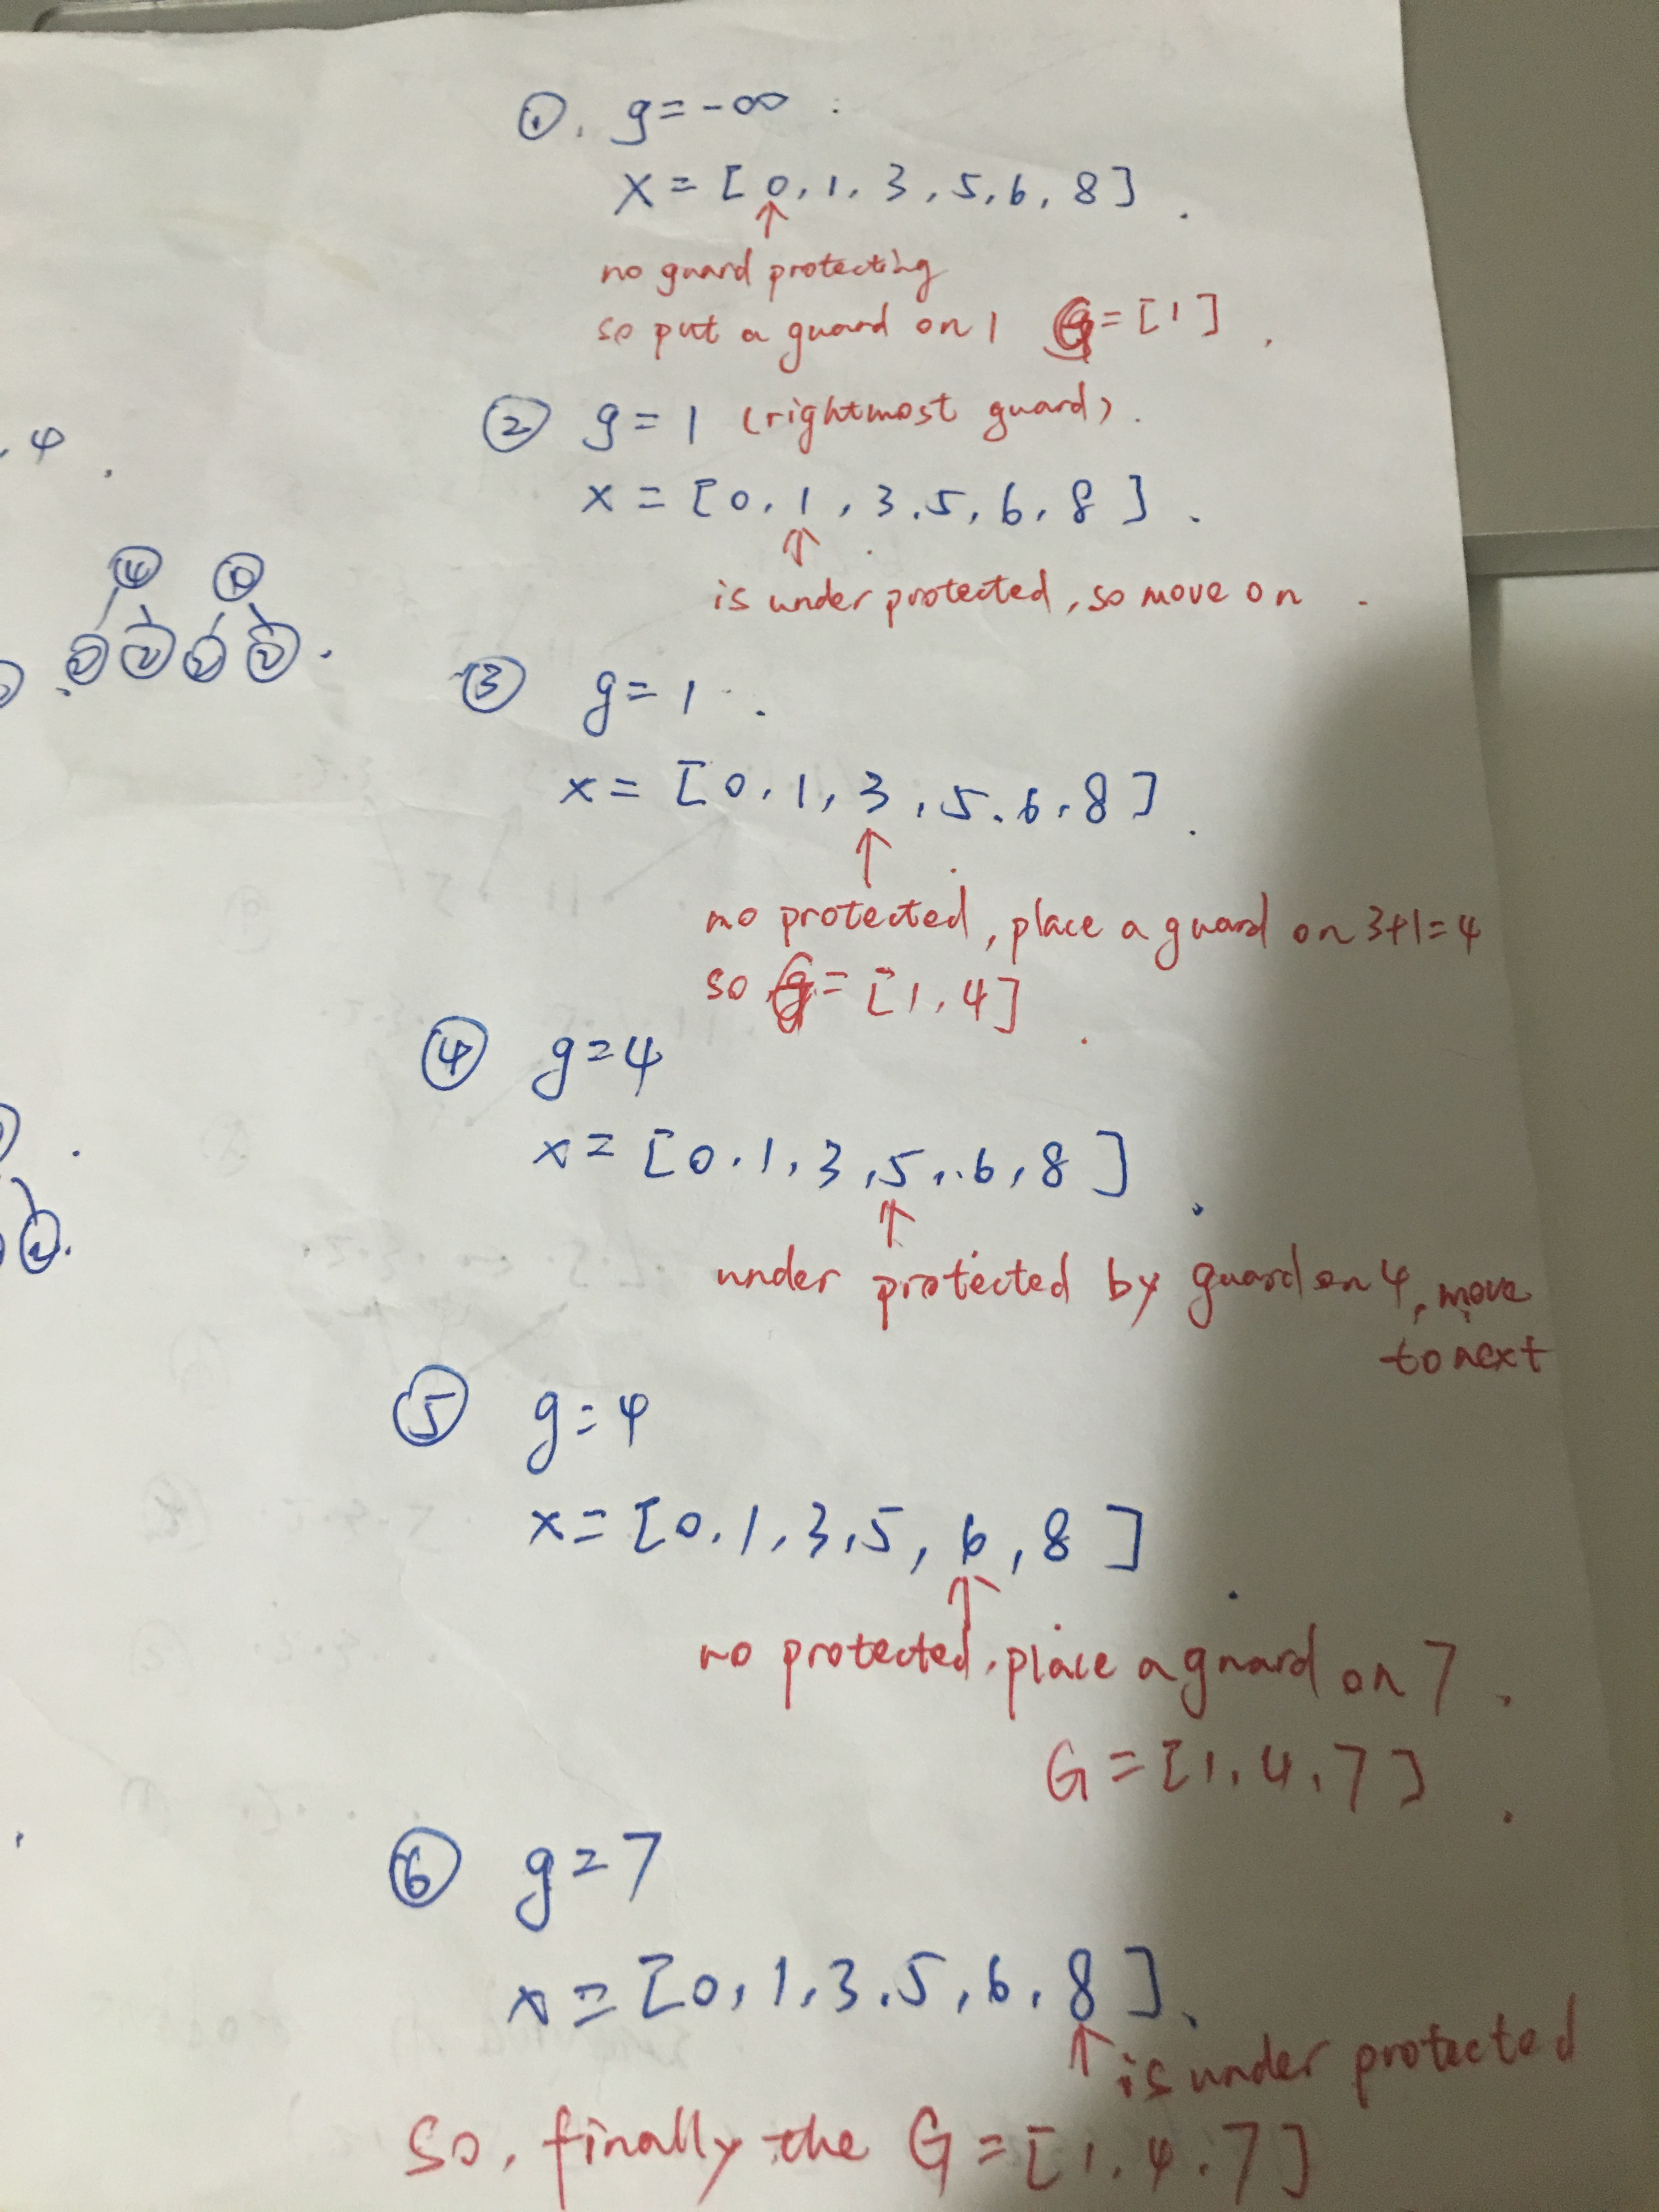 ①. g=-∞ :
X = [0, 1, 3, 5, 6, 8].
↑
no guard protecting
so put a guard on 1 G=[1].
② g=1 (rightmost guard).
, 4.
x = [0, 1, 3.5, 6, 8].
↑
is under protected, so move on.
③ g=1.
x = [0, 1, 3, 5.6, 8].
↑
no protected, place a guard on 3+1=4
so G=[1, 4].
④ g=4
x = [0.1, 3, 5, 6, 8].
↑
under protected by guard on 4, move
to next
⑤ g=4
x = [0.1, 3, 5, 6, 8].
↑
no protected, place a guard on 7.
G=[1, 4, 7].
⑥ g=7
x = [0, 1, 3.5, 6, 8].
↑ is under protected
So, finally the G=[1.4.7]